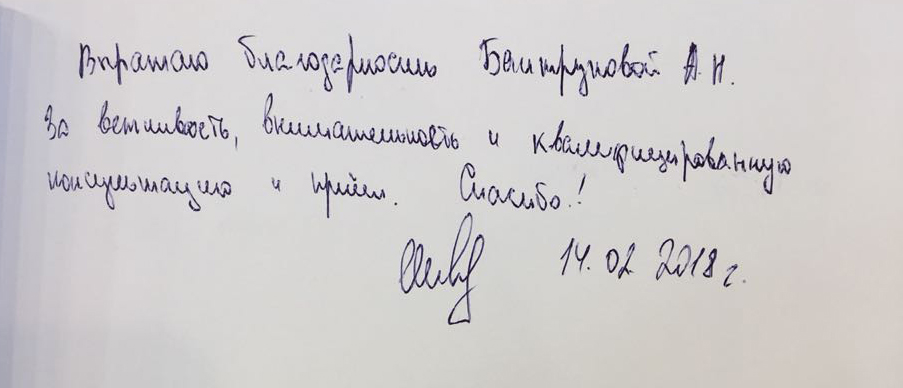 Выражаю благодарность А.Н.
За вежливость, внимательность и квалифицированную
консультацию и приём. Спасибо!
14.02.2018 г.